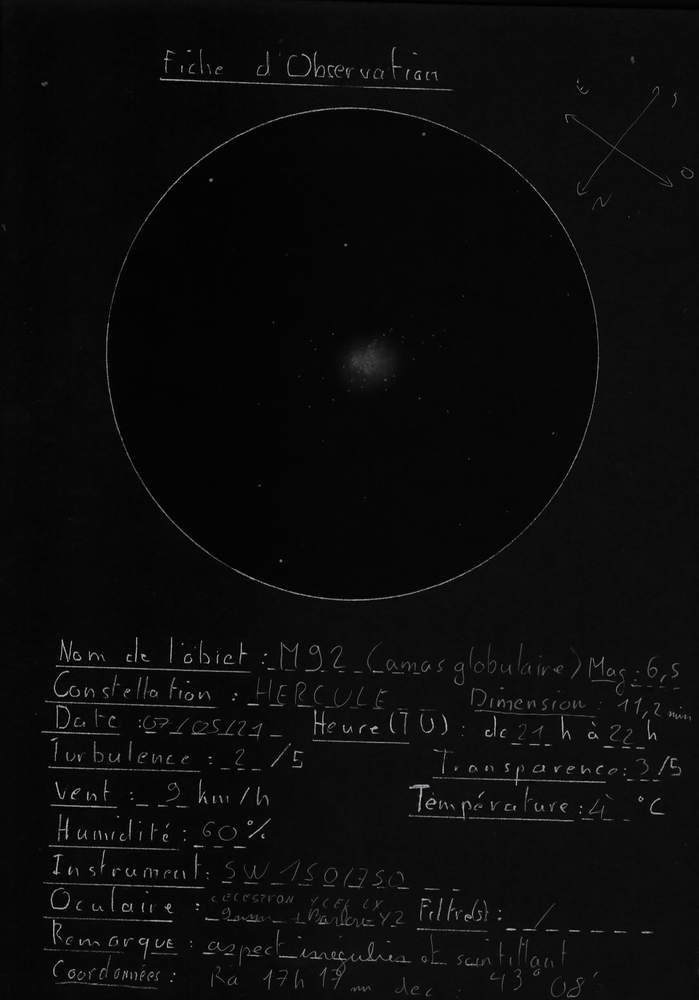 Fiche d'Observation
E S
N O
Nom de l'objet : M92 (amas globulaire) Mag : 6,5
Constellation : HERCULE Dimension : 11,2 min
Date : 07/05/21 Heure (TU) : de 21 h à 22 h
Turbulence : 2 /5 Transparence : 3/5
Vent : 9 km/h Température : 4 °C
Humidité : 60 %
Instrument : SW 150/750
CELESTRON XCEL LX
Oculaire : 9mm + Barlow X2 Filtre(s) : /
Remarque : aspect irregulier et scintillant
Coordonnées : Ra 17h 17 mn dec : 43° 08'